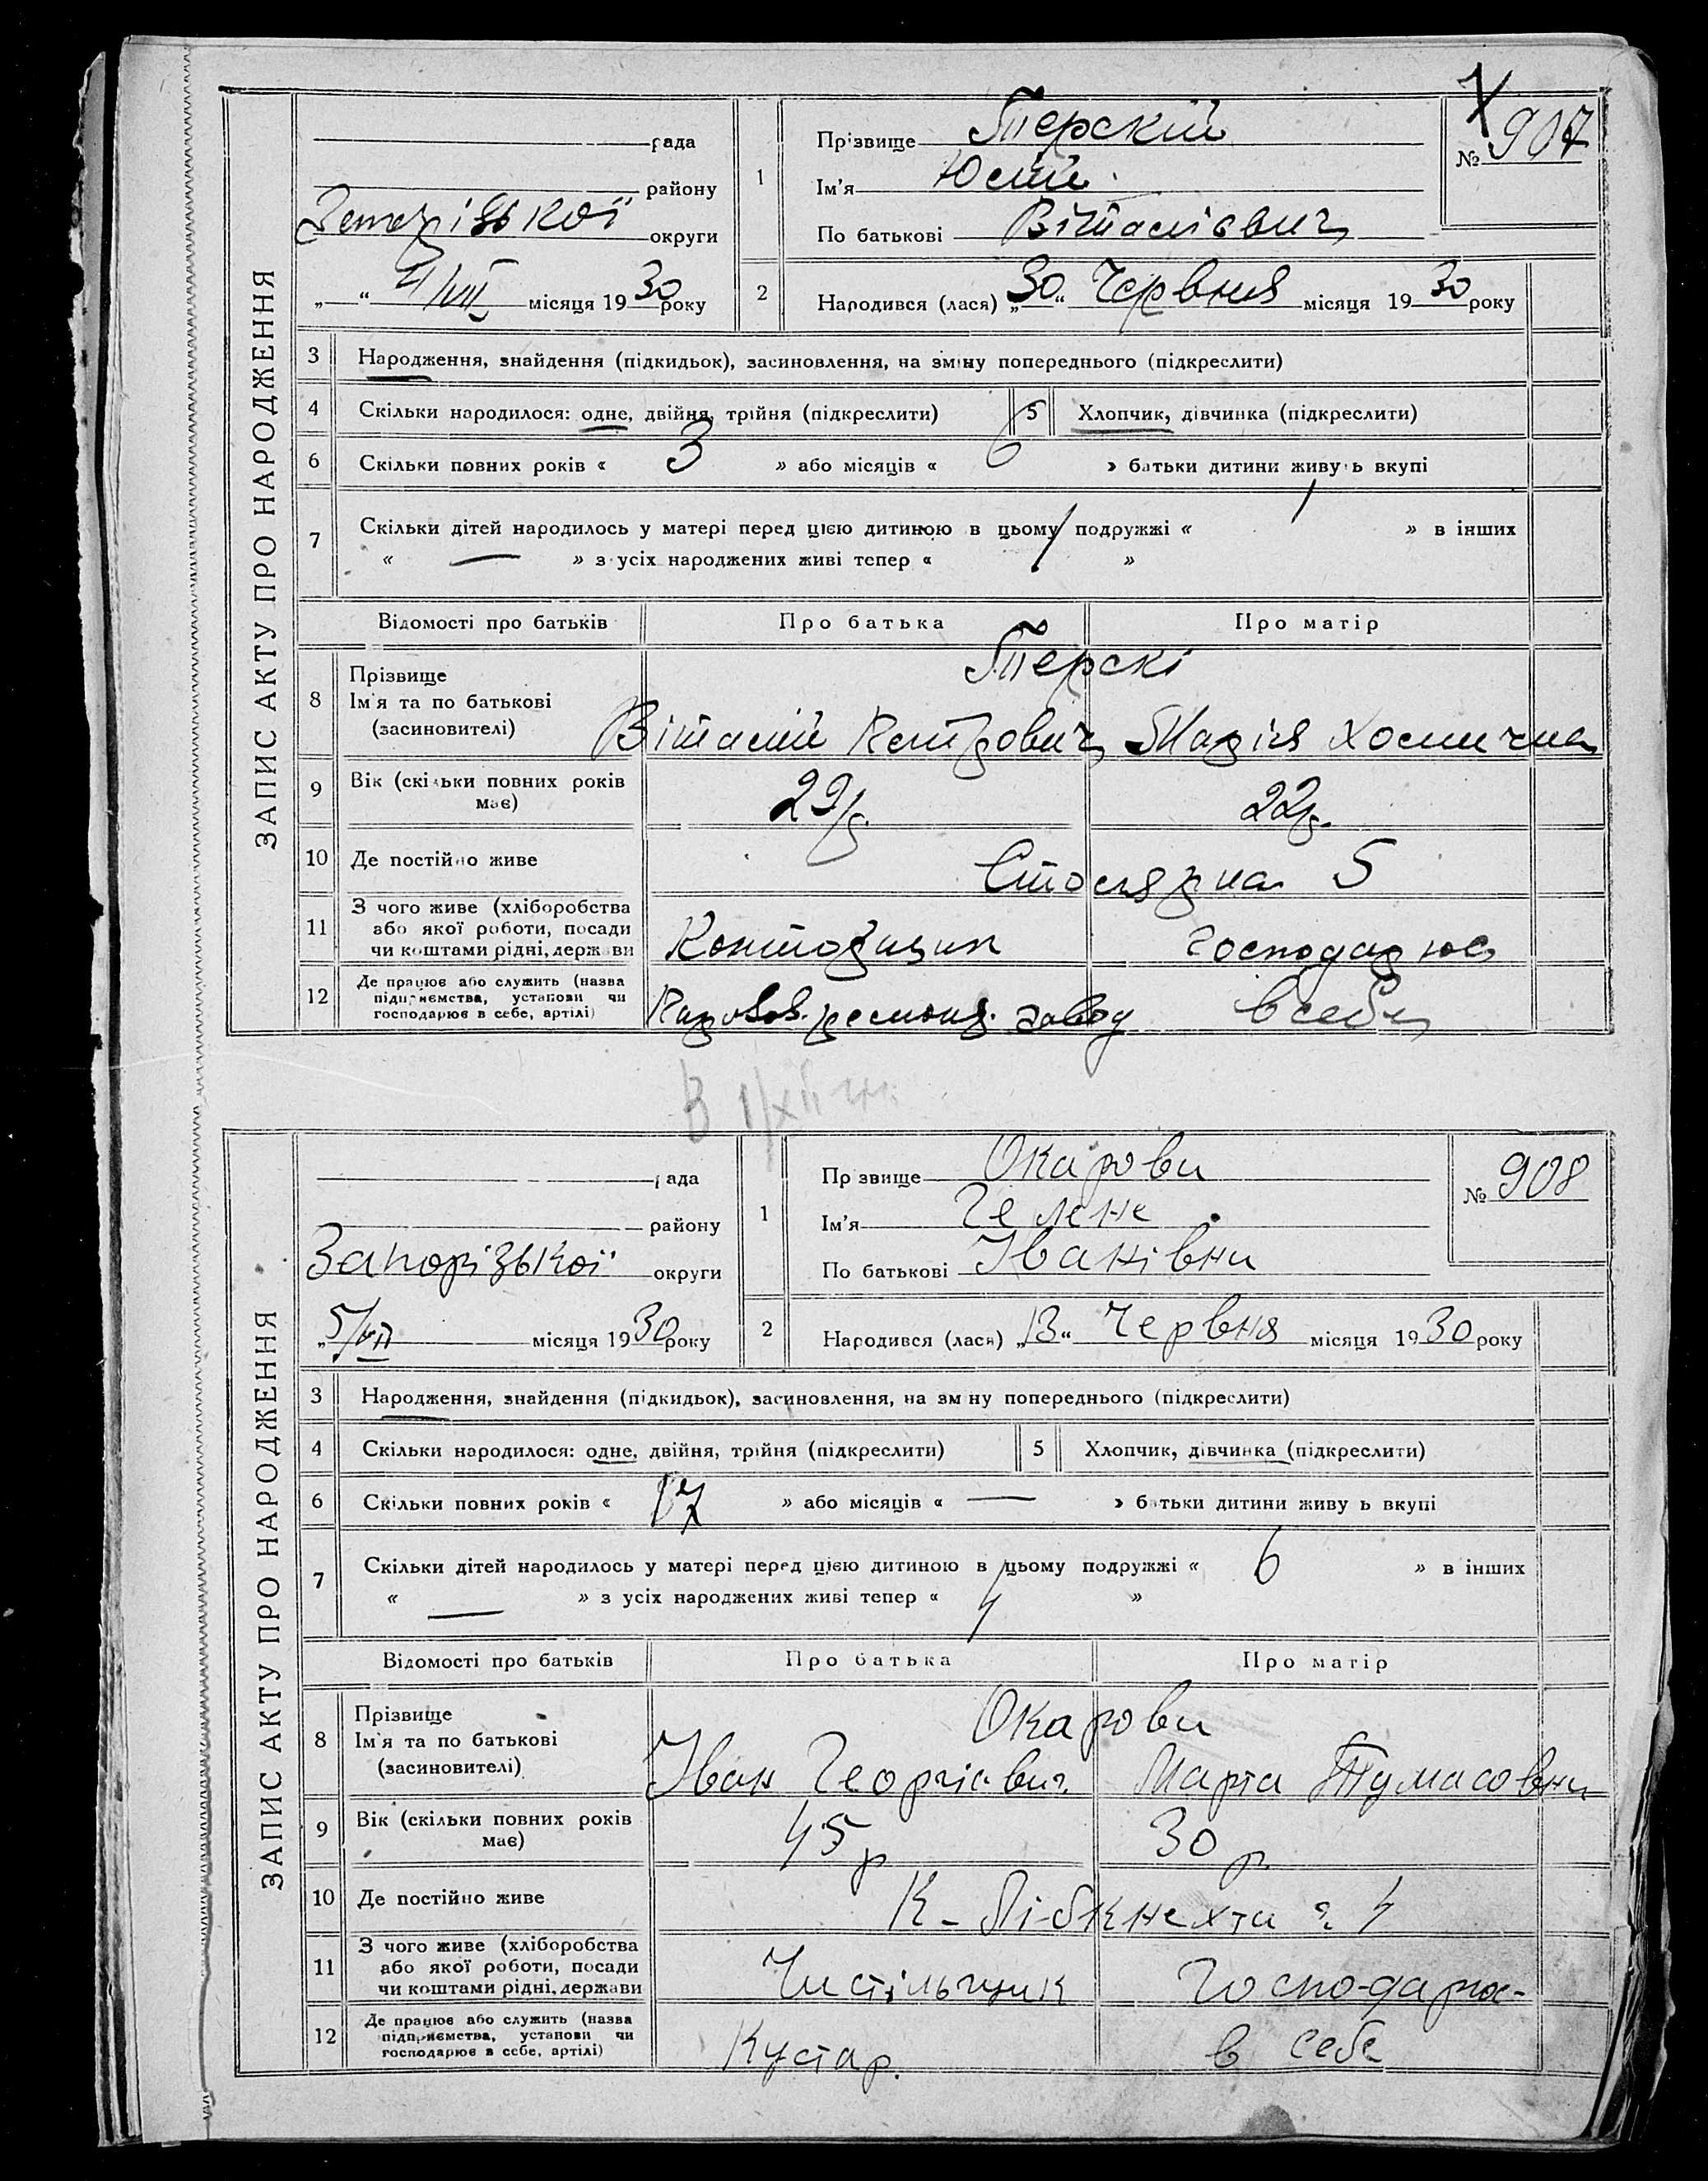 ЗАПИС АКТУ ПРО НАРОДЖЕННЯ
рада
району
округи
„ “ 4/VII місяця 1930 року
1
Прізвище Терский
Ім'я Юлий
По батькові Віталієвич
№ 907
2
Народився (лася) „30“ Червня місяця 1930 року
3 Народження, знайдення (підкидьок), засиновлення, на зміну попереднього (підкреслити)
4 Скільки народилося: одне, двійня, трійня (підкреслити) 5 Хлопчик, дівчинка (підкреслити)
6 Скільки повних років « 3 » або місяців « 6 » батьки дитини живуть вкупі
7 Скільки дітей народилось у матері перед цією дитиною в цьому подружжі « 1 » в інших
« — » з усіх народжених живі тепер « 1 »
Відомості про батьків Про батька Про матір
8 Прізвище Терскі
Ім'я та по батькові Віталій Петрович Марія
(засиновителі)
9 Вік (скільки повних років має) 29 р. 22 р.
10 Де постійно живе Столярна 5
11 З чого живе (хліборобства або якої роботи, посади чи коштами рідні, держави Конторщик господарює
12 Де працює або служить (назва підприємства, установи чи господарює в себе, артілі) ремонт. завод в себе
ЗАПИС АКТУ ПРО НАРОДЖЕННЯ
рада
району
Запорізької округи
„5/VII місяця 1930 року
1
Прізвище Окарови
Ім'я Гелене
По батькові Іванівни
№ 908
2
Народився (лася) „13“ Червня місяця 1930 року
3 Народження, знайдення (підкидьок), засиновлення, на зміну попереднього (підкреслити)
4 Скільки народилося: одне, двійня, трійня (підкреслити) 5 Хлопчик, дівчинка (підкреслити)
6 Скільки повних років « » або місяців « — » батьки дитини живуть вкупі
7 Скільки дітей народилось у матері перед цією дитиною в цьому подружжі « 6 » в інших
« — » з усіх народжених живі тепер « 4 »
Відомості про батьків Про батька Про матір
8 Прізвище Окарови
Ім'я та по батькові Іван Георгієвич Марта Тумасовни
(засиновителі)
9 Вік (скільки повних років має) 45 р 30 р.
10 Де постійно живе К-Лібкнехта 4
11 З чого живе (хліборобства або якої роботи, посади чи коштами рідні, держави Чистільщик Господарює
12 Де працює або служить (назва підприємства, установи чи господарює в себе, артілі) Кустар. в себе